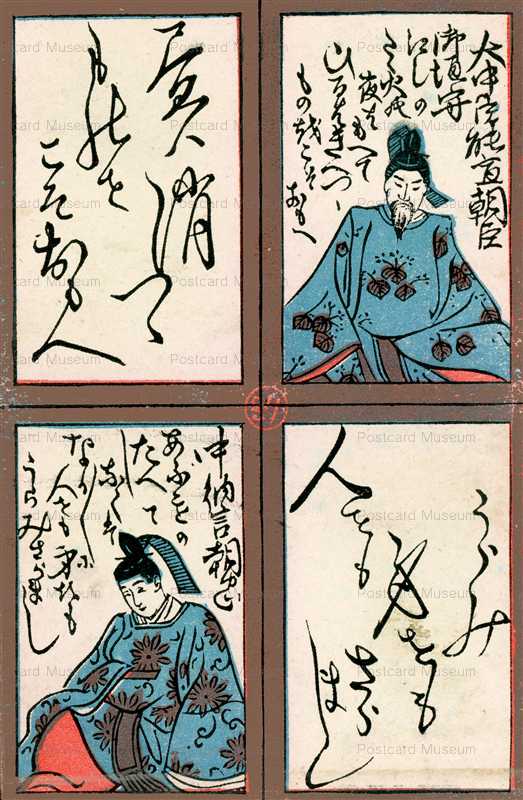 大中臣能宣朝臣
御垣守
ゑしの
たく火の
夜はもへて
ひるはきへつゝ
ものをこそ
おもへ
昼ハ消つゝ
ものを
こそおもへ
人をも
身をも
うらみ
さら
まし
中納言朝忠
あふことの
たへて
なくは
なか〳〵に
人をも身をも
うらみさらまし
Postcard Museum